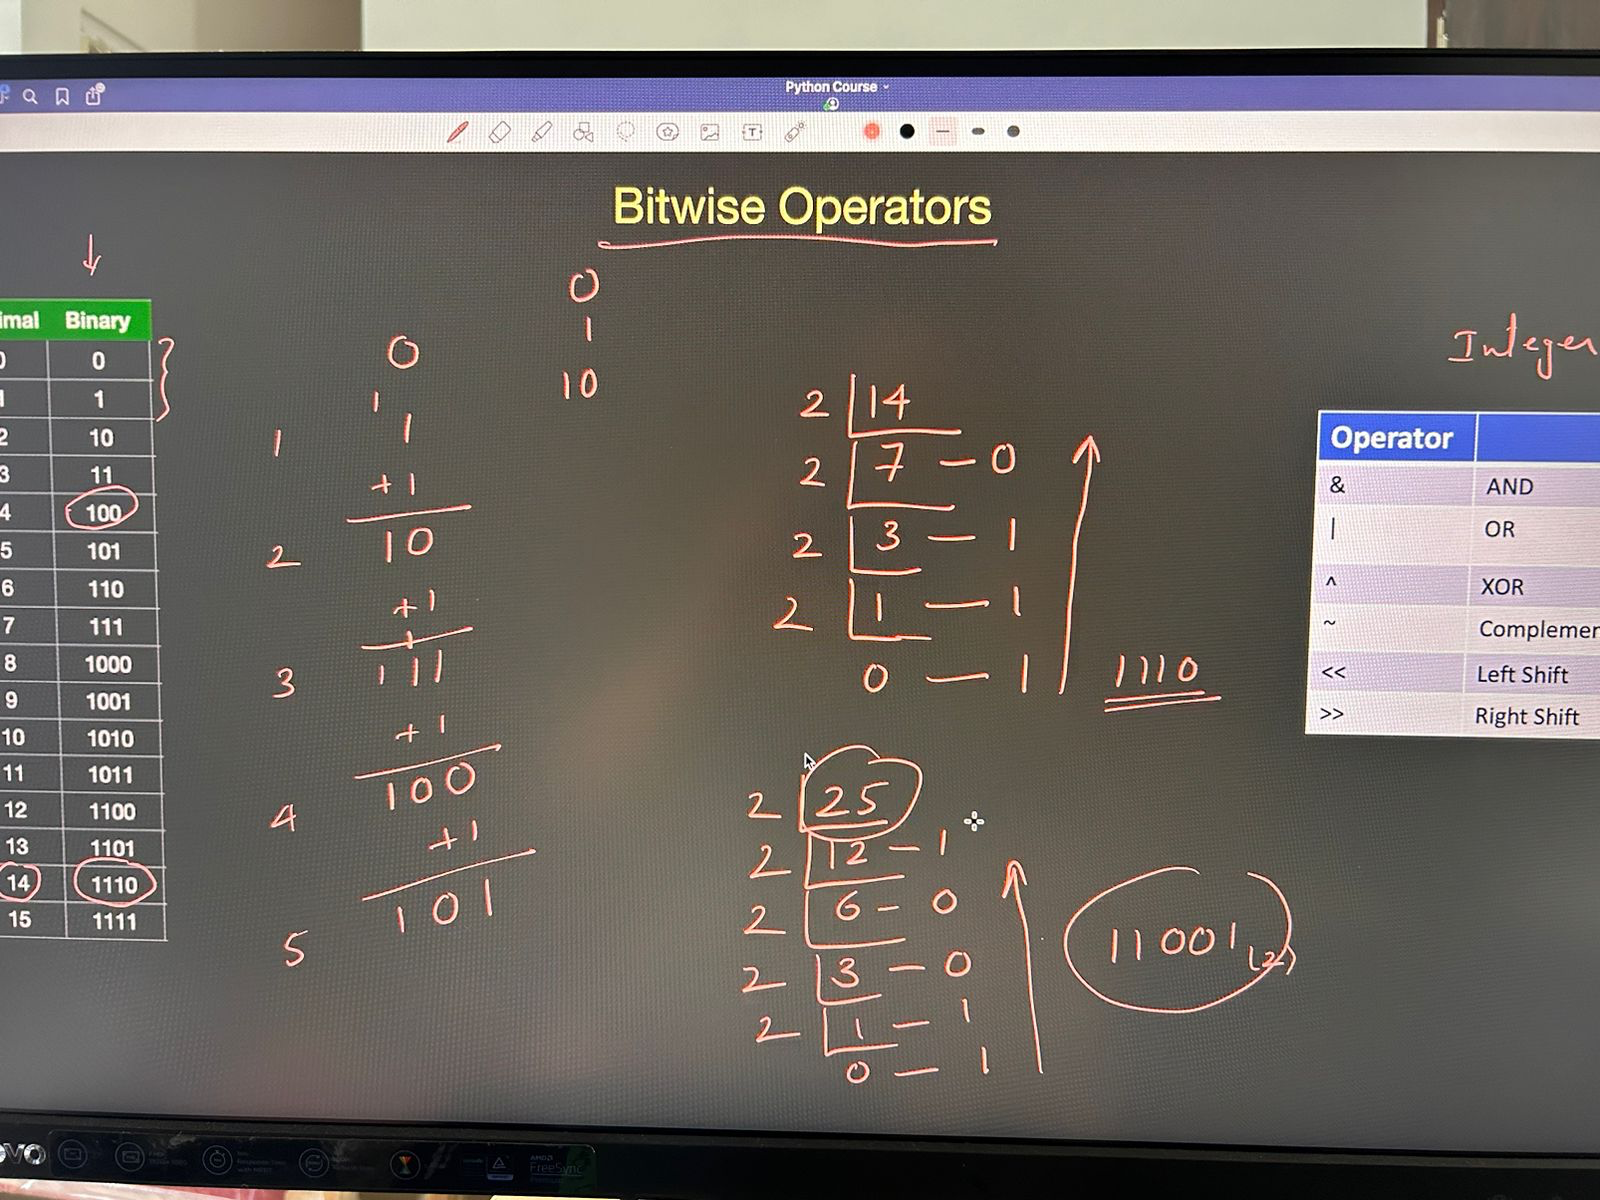 Python Course
Bitwise Operators
imal Binary
0 0
1 1
2 10
3 11
4 100
5 101
6 110
7 111
8 1000
9 1001
10 1010
11 1011
12 1100
13 1101
14 1110
15 1111
0
1
1 1
+1
2 10
+1
1
3 111
+1
4 100
+1
5 101
0
1
10
2 14
2 7 - 0
2 3 - 1
2 1 - 1
0 - 1
1110
2 25
2 12 - 1
2 6 - 0
2 3 - 0
2 1 - 1
0 - 1
11001 (2)
Integer
Operator
& AND
| OR
^ XOR
~ Complemen
<< Left Shift
>> Right Shift
OVO
AMD
FreeSync